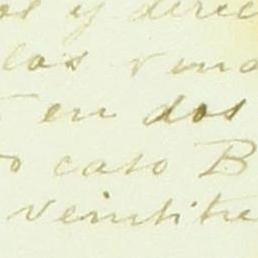 os y derec
las vend
en dos
o caso B
veintitre